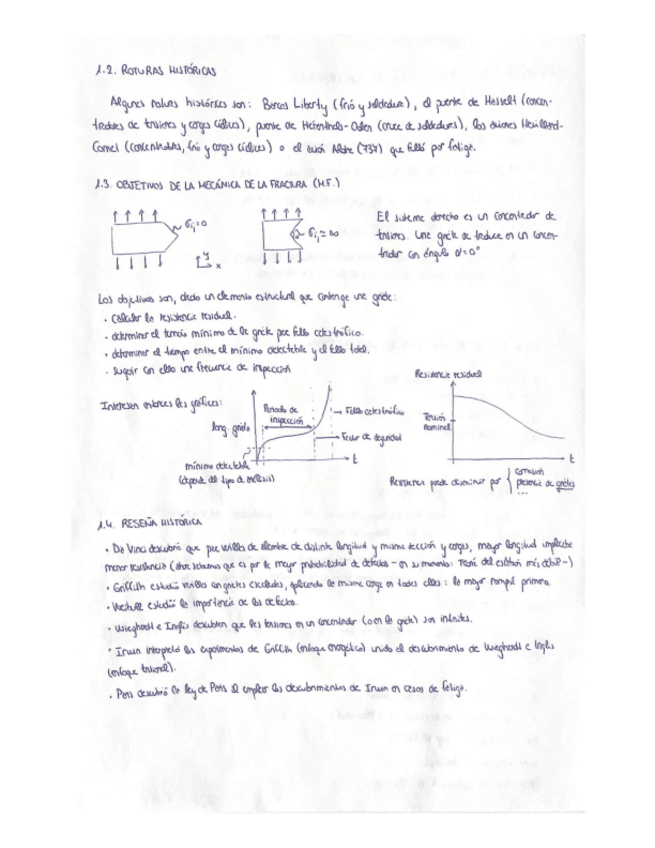 1.2. ROTURAS HISTÓRICAS
Algunas roturas históricas son: Barcos Liberty (frío y soldadura), el puente de Hasselt (concen-
tradores de tensiones y cargas cíclicas), puente de Herenthals-Oolen (cruce de soldaduras), los aviones Havilland-
Comet (concentradores, frío y cargas cíclicas) o el avión Aloha (737) que falló por fatiga.
1.3. OBJETIVOS DE LA MECÁNICA DE LA FRACTURA (M.F.)
σij=0
σij=∞
y
x
El sistema derecho es un concentrador de
tensiones. Una grieta se traduce en un concen-
trador con ángulo α=0°
Los objetivos son, dado un elemento estructural que contenga una grieta:
· Calcular la resistencia residual.
· determinar el tamaño mínimo de la grieta para fallo catastrófico.
· determinar el tiempo entre el mínimo detectable y el fallo total.
· sugerir con ello una frecuencia de inspección
Interesan entonces las gráficas:
long. grieta
Periodo de
inspección
Fallo catastrófico
Factor de seguridad
t
mínimo detectable
(depende del tipo de análisis)
Resistencia residual
Tensión
nominal
t
Resistencia puede disminuir por
corrosión
presencia de grietas
...
1.4. RESEÑA HISTÓRICA
· Da Vinci descubrió que para varillas de alambre de distinta longitud y misma sección y cargas, mayor longitud implicaba
menor resistencia (ahora sabemos que es por la mayor probabilidad de defectos - en su momento: Teoría del eslabón más débil -)
· Griffith estudió varillas con grietas calculadas, aplicando la misma carga en todas ellas: la mayor rompió primero.
· estudió la importancia de los defectos.
· Wieghardt e Inglis descubren que las tensiones en un concentrador (o en la grieta) son infinitas.
· Irwin interpretó los experimentos de Griffith (enfoque energético) unido al descubrimiento de Wieghardt e Inglis
(enfoque tensional).
· Paris descubrió la ley de Paris al emplear los descubrimientos de Irwin en casos de fatiga.